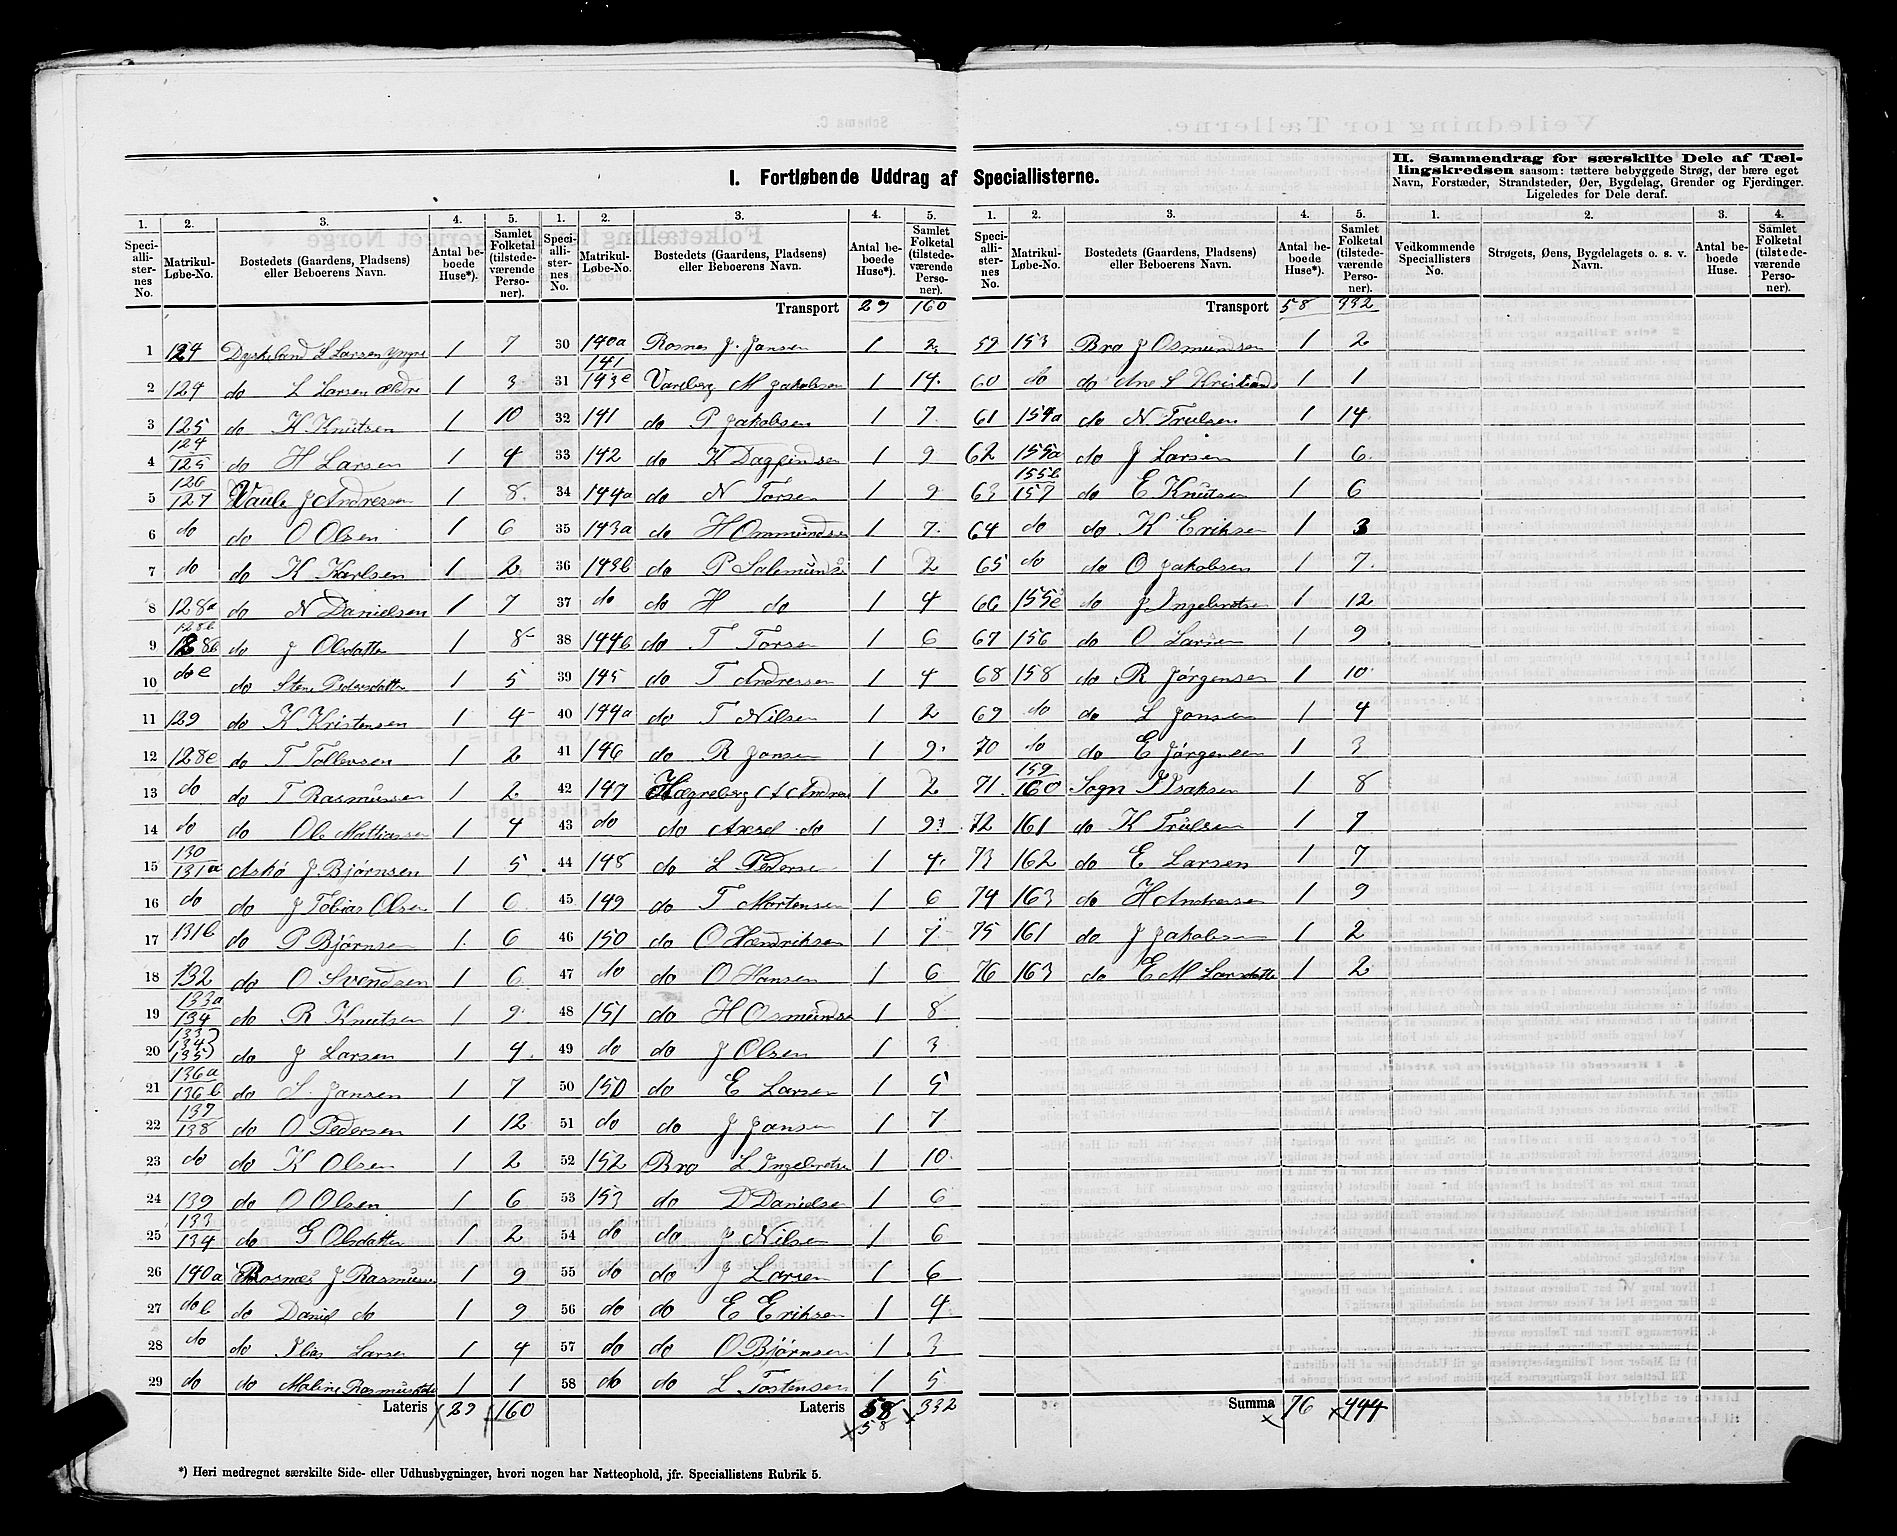 I. Fortløbende Uddrag af Speciallisterne.
II. Sammendrag for særskilte Dele af Tæl-
lingskredsen saasom: tættere bebyggede Strøg, der bære eget
Navn, Forstæder, Strandsteder, Øer, Bygdelag, Grender og Fjerdinger.
Ligeledes for Dele deraf.
1. 2. 3. 4. 5. 1. 2. 3. 4. 5.
Speciallisternes No. Matrikul-Løbe-No. Bostedets (Gaardens, Pladsens) eller Beboerens Navn. Antal beboede Huse*). Samlet Folketal (tilstedeværende Personer).
Transport 29 160
1 124 Dyskeland L Larsen yngre 1 7
2 124 do L Larsen ældre 1 3
3 125 do K Knutsen 1 10
4 124/125 do H Larsen 1 4
5 126/127 Vaule J Andressen 1 8
6 do do O Olsen 1 6
7 do do K Karlsen 1 2
8 128a do N Danielsen 1 7
9 128b 128b do J Olsdatter 1 8
10 do c do Stine Pedersdatter 1 5
11 129 do K Kristensen 1 4
12 128c do T Tollevsen 1 2
13 do do T Rasmussen 1 2
14 do do Ole Mattiassen 1 4
15 130/131a Askø J. Bjørnsen 1 5
16 do do J Tobias Olsen 1 6
17 131b do P Bjørnsen 1 6
18 132 do O Svendsen 1 6
19 133a/134 do R Knutsen 1 9
20 133/134/135 do J Larsen 1 4
21 136a/136b do S. Jansen 1 7
22 137/138 do O Pedersen 1 12
23 do do K Olsen 1 2
24 139 do O Olsen 1 6
25 133/134 do G Olsdatter 1 2
26 140a Rosnes J Rasmussen 1 9
27 do b do Daniel do 1 9
28 do do Elias Larsen 1 4
29 do do Maline Rasmusdatter 1 1
Lateris 29 160
30 140a Rosnes J. Jansen 1 2
31 141/143c Vareberg M Jakobsen 1 14
32 141 do P Jakobsen 1 7
33 142 do K Dagfindsen 1 9
34 144a do N Torsen 1 9
35 143a do H Ommundsen 1 7
36 143b do P Salemunds 1 2
37 do do H do 1 4
38 144b do T Torsen 1 6
39 145 do T Andressen 1 4
40 144a do T Nilsen 1 2
41 146 do R Jansen 1 9
42 147 Hegreberg A Andrea 1 2
43 do do Axsel do 1 9
44 148 do L Pederse 1 4
45 149 do T Mortensen 1 6
46 150 do O Hendriksen 1 7
47 do do O Hansen 1 6
48 151 do H Osmundse 1 8
49 do do J Olsen 1 3
50 150 do E Larsen 1 5
51 do do J Jansen 1 7
52 152 Bro L Ingebretse 1 10
53 153 do D Danielsen 1 6
54 do do J Nilsen 1 6
55 do do J Larsen 1 6
56 do do E Eriksen 1 4
57 do do O Bjørnsen 1 3
58 do do L Tostensen 1 5
Lateris 58 332
58
1. 2. 3. 4. 5. 1. 2. 3. 4.
Speciallisternes No. Matrikul-Løbe-No. Bostedets (Gaardens, Pladsens) eller Beboerens Navn. Antal beboede Huse*). Samlet Folketal (tilstedeværende Personer).
Vedkommende Speciallisters No. Strøgets, Øens, Bygdelagets o. s. v. Navn. Antal beboede Huse. Samlet Folketal (tilstedeværende Personer).
Transport 58 332
59 153 Bro J Osmundsen 1 2
60 do do Ane S Kristiands 1 1
61 154a do N Trulsen 1 14
62 155a do J Larsen 1 6
63 155b/157 do E Knutsen 1 6
64 do do K Eriksen 1 3
65 do do O Jakobsen 1 7
66 155c do J Ingebretse 1 12
67 156 do O Larsen 1 9
68 158 do R Jørgensen 1 10
69 do do L Jansen 1 4
70 do do E Jørgensen 1 3
71 159/160 Sogn J Isaksen 1 8
72 161 do K Trulsen 1 7
73 162 do E Larsen 1 7
74 163 do H Andressen 1 9
75 161 do J Jakobsen 1 2
76 163 do E M Larsdatte 1 2
Summa 76 444
*) Heri medregnet særskilte Side- eller Udhusbygninger, hvori nogen har Natteophold, jfr. Speciallistens Rubrik 5.